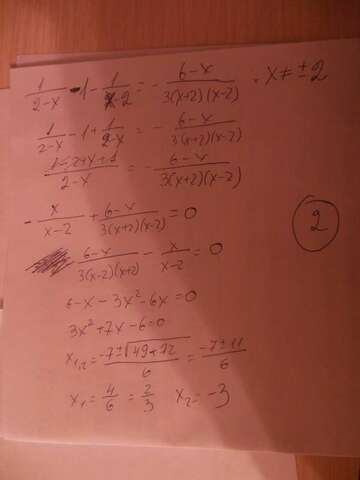 1/(2-x) - 1 - 1/(x-2) = - (6-x)/(3(x+2)(x-2)) , x ≠ ±2
1/(2-x) - 1 + 1/(2-x) = - (6-x)/(3(x+2)(x-2))
(1-2+x+1)/(2-x) = - (6-x)/(3(x+2)(x-2))
- x/(x-2) + (6-x)/(3(x+2)(x-2)) = 0
2
(6-x)/(3(x-2)(x+2)) - x/(x-2) = 0
6-x-3x²-6x=0
3x²+7x-6=0
x₁,₂ = (-7±√(49+72))/6 = (-7±11)/6
x₁ = 4/6 = 2/3 x₂ = -3